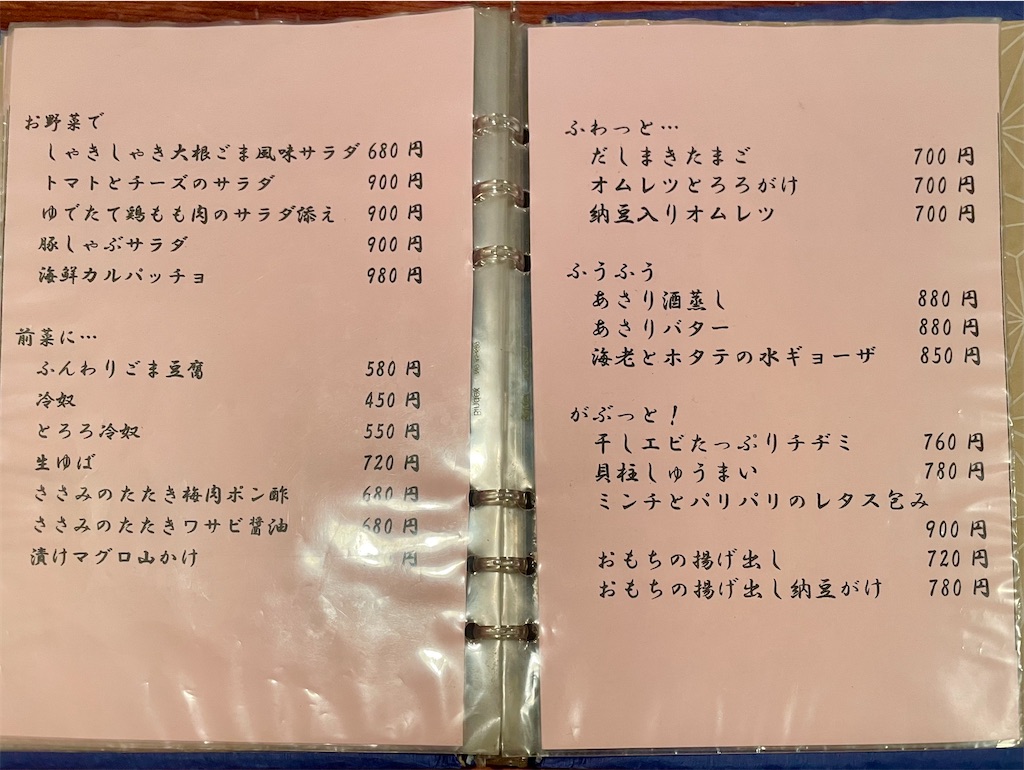 お野菜で
しゃきしゃき大根ごま風味サラダ 680円
トマトとチーズのサラダ 900円
ゆでたて鶏もも肉のサラダ添え 900円
豚しゃぶサラダ 900円
海鮮カルパッチョ 980円
前菜に…
ふんわりごま豆腐 580円
冷奴 450円
とろろ冷奴 550円
生ゆば 720円
ささみのたたき梅肉ポン酢 680円
ささみのたたきワサビ醤油 680円
漬けマグロ山かけ 円
ふわっと…
だしまきたまご 700円
オムレツとろろがけ 700円
納豆入りオムレツ 700円
ふうふう
あさり酒蒸し 880円
あさりバター 880円
海老とホタテの水ギョーザ 850円
がぶっと!
干しエビたっぷりチヂミ 760円
貝柱しゅうまい 780円
ミンチとパリパリのレタス包み
900円
おもちの揚げ出し 720円
おもちの揚げ出し納豆がけ 780円